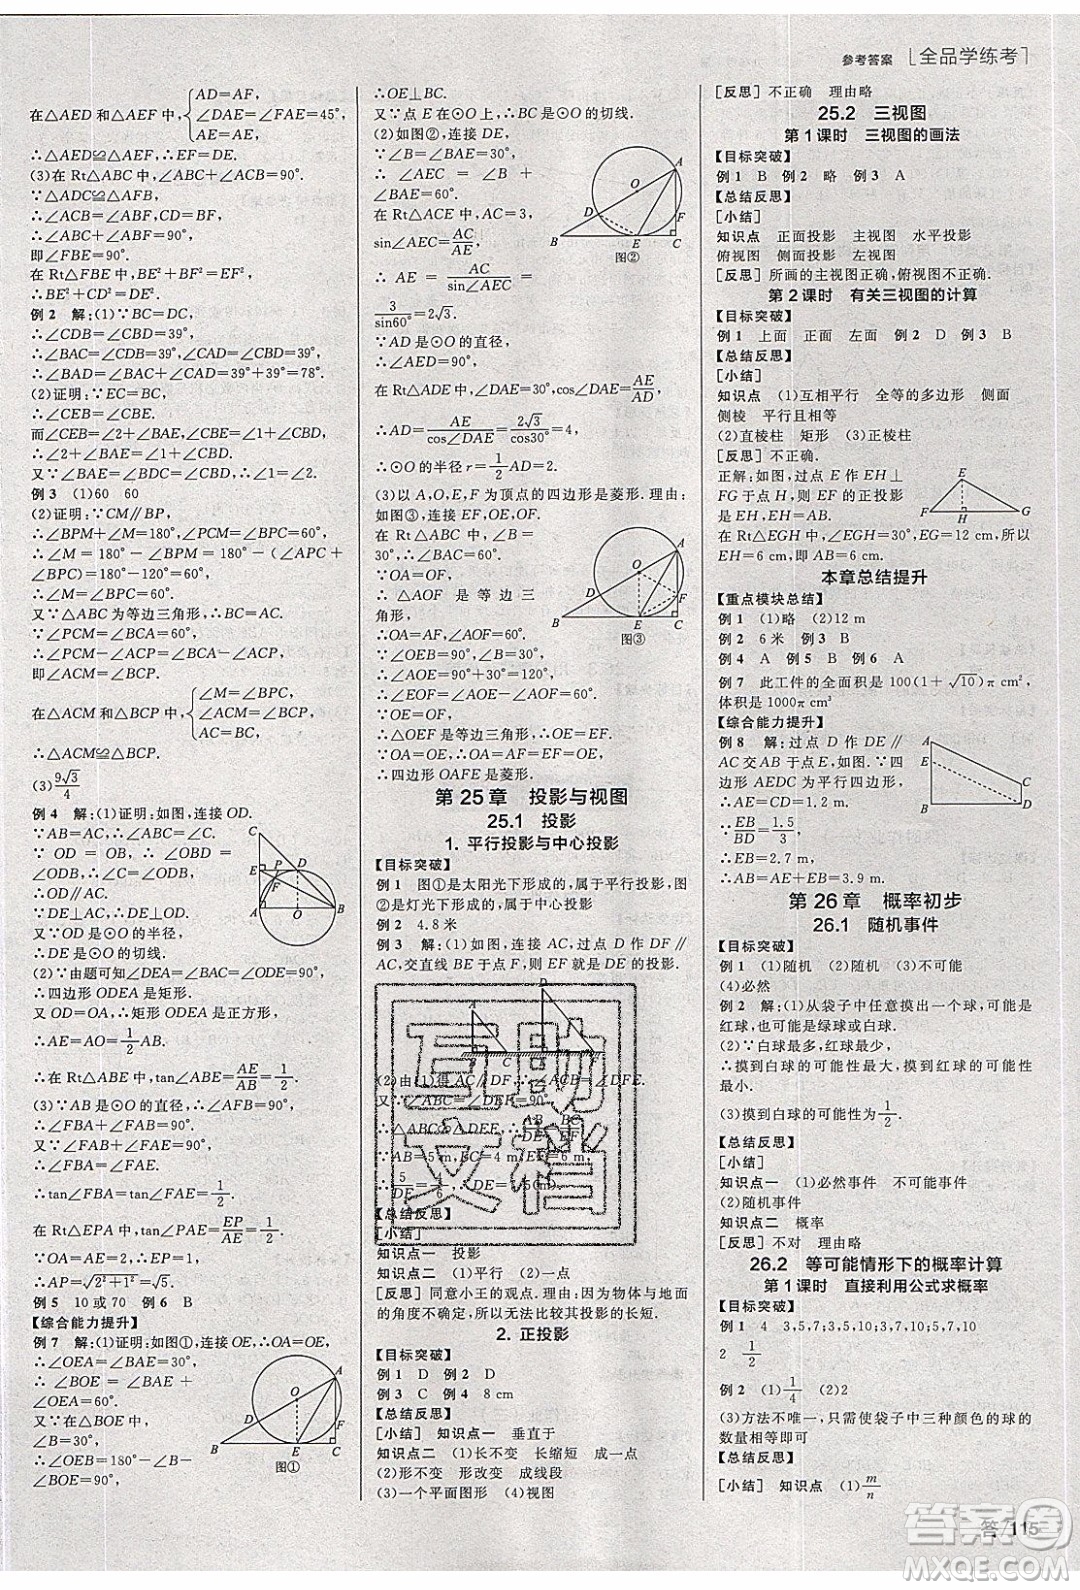 参考答案 [全品学练考]
在△AED和△AEF中,{AD=AF, ∠DAE=∠FAE=45°, AE=AE,
∴△AED≌△AEF,∴DE=EF.
(3)在Rt△ABC中,∠ABC+∠ACB=90°.
∵△ADC≌△AFB,
∴∠ACB=∠ABF,
∴∠ABC+∠ABF=90°,
即∠FBE=90°.
在Rt△FBE中,BE²+BF²=EF²,
∴BE²+DC²=DE².
例2 解:(1)∵BC=DC,
∴∠CDB=∠CBD=39°,
∴∠BAC=∠CDB=39°,∠CAD=∠CBD=39°,
∴∠BAD=∠BAC+∠CAD=39°+39°=78°.
(2)证明:∵EC=BC,
∴∠CEB=∠CBE.
而∠CEB=∠2+∠BAE,∠CBE=∠1+∠CBD,
∴∠2+∠BAE=∠1+∠CBD.
又∵∠BAE=∠BDC=∠CBD,∴∠1=∠2.
例3 (1)60 60
(2)证明:∵CM∥BP,
∴∠BPM+∠M=180°,∠PCM=∠BPC.
∴∠M = 180° - ∠BPM = 180° - (∠APC + ∠BPC)=180°-120°=60°,∴∠M=∠BPC=60°.
又∵△ABC为等边三角形,∴BC=AC.
∵∠PCM=∠BCA=60°,
∴∠PCM-∠BCA=∠BCA-∠PCA,
即∠ACM=∠BCP.
在△ACM和△BCP中,{∠M=∠BPC, ∠ACM=∠BCP, AC=BC,
∴△ACM≌△BCP.
(3)9√3/4
例4 解:(1)证明:如图,连接OD.
∵AB=AC,∴∠C=∠OBD.
∵ OD = OB,∴∠OBD = ∠ODB,∴∠ODB=∠C,
∴OD∥AC.
∵DE⊥AC,∴DE⊥OD.
又∵OD是⊙O的半径,
∴DE是⊙O的切线.
(2)∵由题可知∠DEA=∠BAC=∠ODE=90°,
∴四边形ODEA是矩形.
又OD=OA,∴矩形ODEA是正方形,
∴AE=AO=1/2AB.
∴在Rt△ABE中,tan∠ABE=AE/AB=1/2.
(3)∵AB是⊙O的直径,∴∠AFB=90°,
∴∠FBA+∠FAB=90°.
又∵∠FAE+∠FAB=90°,
∴∠FBA=∠FAE.
∴tan∠FBA=tan∠FAE=1/2.
在Rt△EPA中,tan∠PAE=EP/AE=1/2.
∵OA=AE=2,∴EP=1,
∴AP=√(2²+1²)=√5.
例5 10或70 例6 B
【综合能力提升】
例7 解:(1)证明:如图①,连接OE,∴OA=OE,
∴∠OEA=∠BAE=30°,
∴∠BOE = ∠BAE + ∠OEA=60°.
又∵在△AEB中,∠B=∠BAE=30°,
∴∠OEB=180°-∠B-∠BOE=90°,
图①
∴OE⊥BC.
又∵点E在⊙O上,∴BC是⊙O的切线.
(2)如图②,连接DE,
∵∠B=∠BAE=30°,
∴ ∠AEC = ∠B + ∠BAE=60°.
在Rt△ACE中,AC=3,
sin∠AEC=AC/AE,
∴ AE = AC/sin∠AEC = 3/sin60°=2√3.
图②
∵AD是⊙O的直径,
∴∠AED=90°.
在Rt△ADE中,∠DAE=30°,cos∠DAE=AE/AD,
∴AD=AE/cos∠DAE=2√3/cos30°=4,
∴⊙O的半径r=1/2AD=2.
(3)以A,O,E,F为顶点的四边形是菱形.理由:如图③,连接EF,OE,OF.
在Rt△ABC中,∠B=30°,∴∠BAC=60°.
∵OA=OF,
∴ △AOF 是等边三角形,
图③
∴OA=AF,∠AOF=60°.
∵∠OEB=90°,∠B=30°,
∴∠AOE=90°+30°=120°,
∴∠EOF=∠AOE-∠AOF=60°.
∵OE=OF,
∴△OEF是等边三角形,∴OE=EF.
∵OA=OE,∴OA=AF=EF=OE,
∴四边形OAFE是菱形.
第25章 投影与视图
25.1 投影
1. 平行投影与中心投影
【目标突破】
例1 图①是太阳光下形成的,属于平行投影,图②是灯光下形成的,属于中心投影.
例2 4.8米
例3 解:(1)连接AC,过点D作DF∥AC,交直线BE于点F,EF就是DE的投影.
(2)由(1)得AC∥DF,∴∠ACB=∠DFE.
∵AB=5 m,BC=4 m,EF=6 m,
∴5/DE=4/6,∴DE=7.5(m).
【总结反思】
[小结]
知识点一 投影
知识点二 (1)平行 (2)一点
[反思] 同意小王的观点.理由:因为物体与地面的角度不确定,所以无法比较其投影的长短.
2. 正投影
【目标突破】
例1 D 例2 D
例3 C 例4 8 cm
【总结反思】
[小结] 知识点一 垂直于
知识点二 (1)长不变 长缩短 成一点
(2)形不变 形改变 成线段
(3)一个平面图形 (4)视图
[反思] 不正确 理由略
25.2 三视图
第1课时 三视图的画法
【目标突破】
例1 B 例2 略 例3 A
【总结反思】
[小结]
知识点 正面投影 主视图 水平投影
俯视图 侧面投影 左视图
[反思] 所画的主视图正确,俯视图不正确.
第2课时 有关三视图的计算
【目标突破】
例1 上面 正面 左面 例2 D 例3 B
【总结反思】
[小结]
知识点 (1)互相平行 全等的多边形 侧面
侧棱 平行且相等
(2)直棱柱 矩形 (3)正棱柱
[反思] 不正确.
正解:如图,过点E作EH⊥FG于点H,则EF的正投影是EH,EH=AB.
在Rt△EGH中,∠EGH=30°,EG=12 cm,所以EH=6 cm,即AB=6 cm.
本章总结提升
【重点模块总结】
例1 (1)略 (2)12 m
例2 6米 例3 B
例4 A 例5 B 例6 A
例7 此工件的全面积是100(1+√10)π cm²,体积是1000π cm³
【综合能力提升】
例8 解:过点D作DE∥AC交AB于点E,则四边形AEDC为平行四边形,
∴AE=CD=1.2 m.
∵EB/BD=1.5/3,
∴EB=2.7 m,
∴AB=AE+EB=3.9 m.
第26章 概率初步
26.1 随机事件
【目标突破】
例1 (1)随机 (2)随机 (3)不可能
(4)必然
例2 解:(1)从袋子中任意摸出一个球,可能是红球,也可能是绿球或白球.
(2)∵白球最多,红球最少,
∴摸到白球的可能性最大,摸到红球的可能性最小.
(3)摸到白球的可能性为1/2.
【总结反思】
[小结]
知识点一 (1)必然事件 不可能事件
(2)随机事件
知识点二 概率
[反思] 不对 理由略
26.2 等可能情形下的概率计算
第1课时 直接利用公式求概率
【目标突破】
例1 4 3,5,7;3,5,10;3,7,10;5,7,10
2 1/2
例2 (1)1/4 (2)2
(3)方法不唯一,只需使袋子中三种颜色的球的数量相等即可
【总结反思】
[小结] 知识点 (1)m/n
答/115
互助文档
答案圈
MXQE.COM